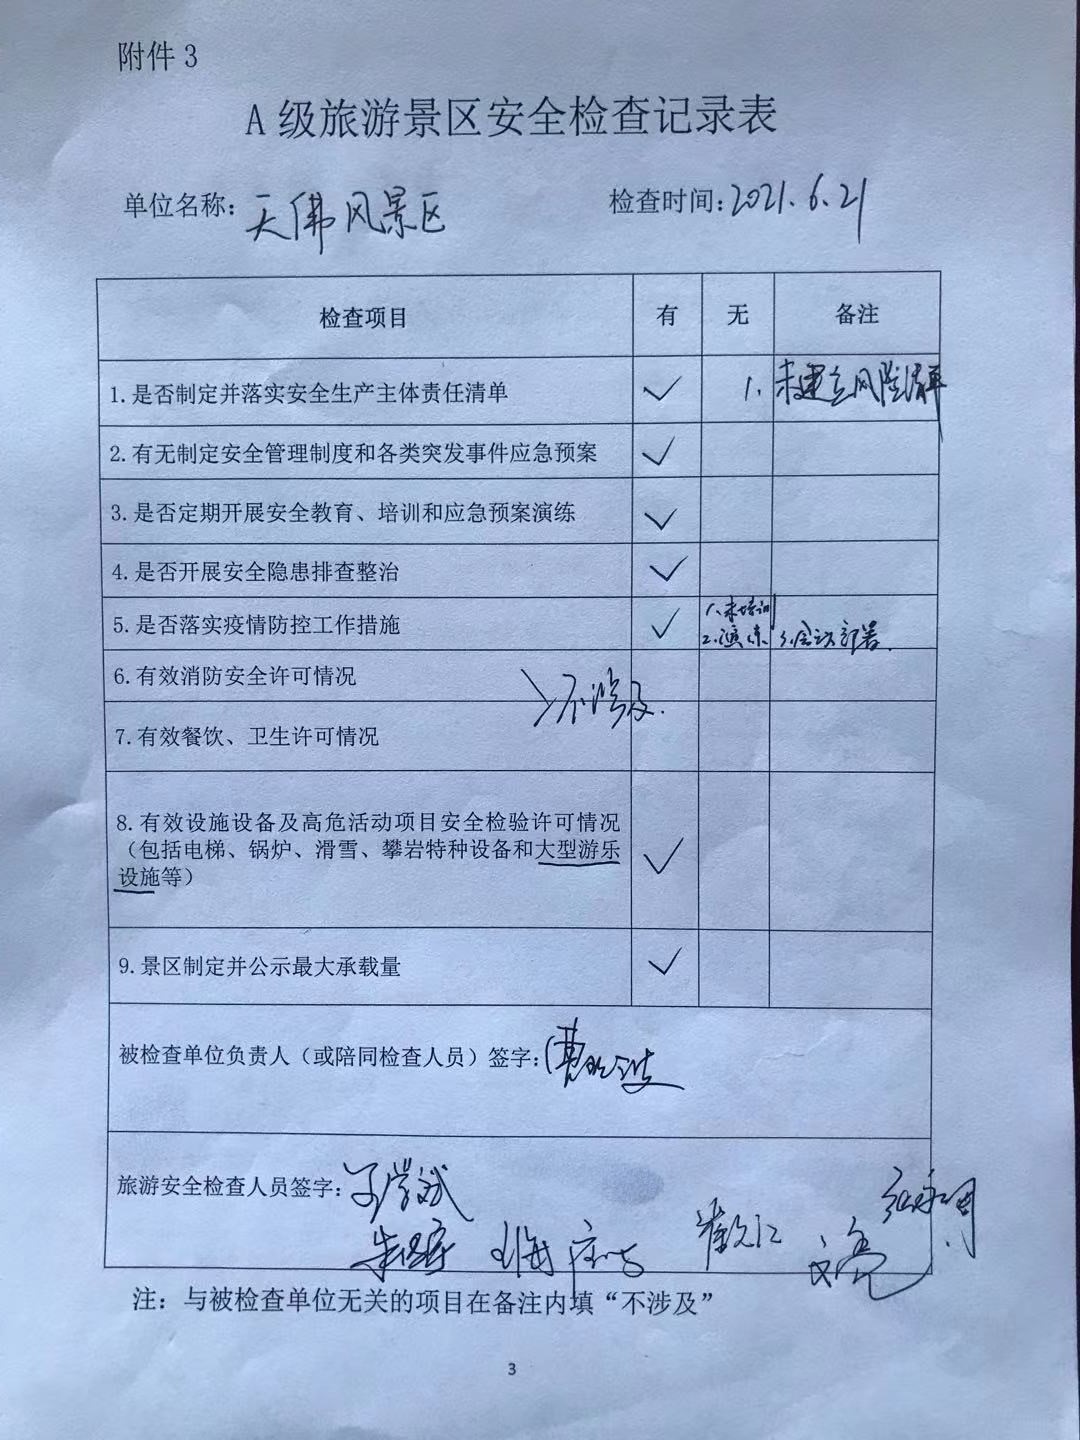 附件3
A级旅游景区安全检查记录表
单位名称：天佛风景区 检查时间：2021.6.21
检查项目 有 无 备注
1.是否制定并落实安全生产主体责任清单 ✓ 1、未建立风险清单
2.有无制定安全管理制度和各类突发事件应急预案 ✓
3.是否定期开展安全教育、培训和应急预案演练 ✓
4.是否开展安全隐患排查整治 ✓
5.是否落实疫情防控工作措施 ✓ 1、未培训
2、演练 3、会议部署.
6.有效消防安全许可情况
不涉及.
7.有效餐饮、卫生许可情况
8.有效设施设备及高危活动项目安全检验许可情况
（包括电梯、锅炉、滑雪、攀岩特种设备和大型游乐 ✓
设施等）
9.景区制定并公示最大承载量 ✓
被检查单位负责人（或陪同检查人员）签字：
旅游安全检查人员签字：
注：与被检查单位无关的项目在备注内填“不涉及”
3